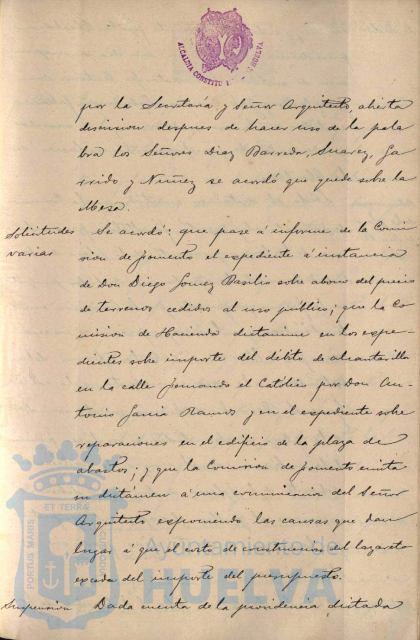 ALCALDIA CONSTITU HUELVA
por la Secretaria y Señor Arquitecto, abierta
discusion despues de hacer uso de la pala
bra los Señores Diaz Barreda, Suarez, Ga
rrido y Nuñez se acordó que quede sobre la
Mesa.
Solicitudes
varias
Se acordó: que pase á informe de la Comi
sion de Fomento el expediente á instancia
de Don Diego Gomez Basilio sobre abono del precio
de terrenos cedidos al uso público; que la Co
mision de Hacienda dictamine en los expe-
dientes sobre importe del débito de alcantarilla
en la calle Fernando el Católico por Don An
tonio Garcia Ramos y en el expediente sobre
reparaciones en el edificio de la plaza de
abastos; y que la Comision de Fomento emita
su dictámen á una comunicacion del Señor
Arquitecto exponiendo las causas que dan
lugar á que el costo de construccion del lazareto
exceda del importe del presupuesto.
Suspension
Dada cuenta de la providencia dictada
PORTUS MARIS
ET TERRÆ
CUSTODIA
Ayuntamiento de
HUELVA